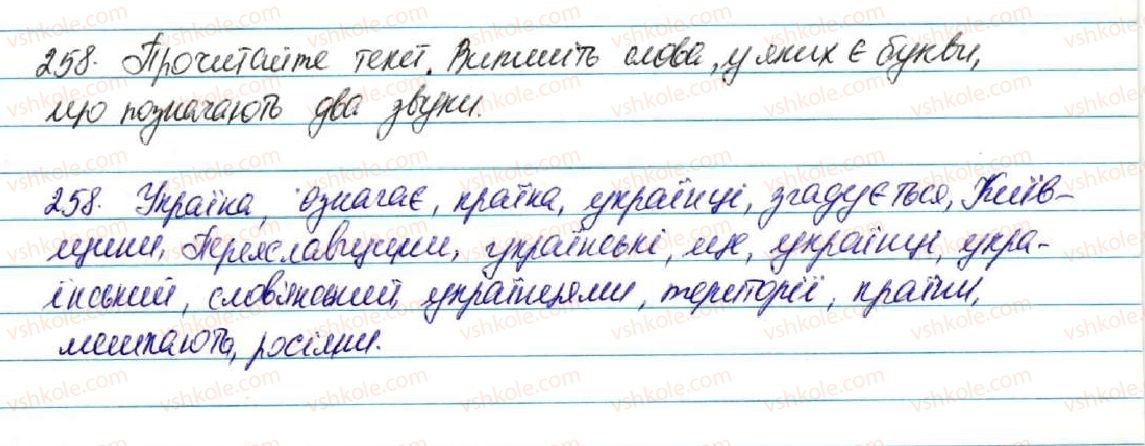 258. Прочитайте текст. Випишіть слова, у яких є букви,
що позначають два звуки.
258. Україна, означає, країна, українці, згадується, Київ-
щини, Переяславщини, українські, це, українці, укра-
їнський, слов'янський, українцями, території, країни,
мешкають, росіяни.